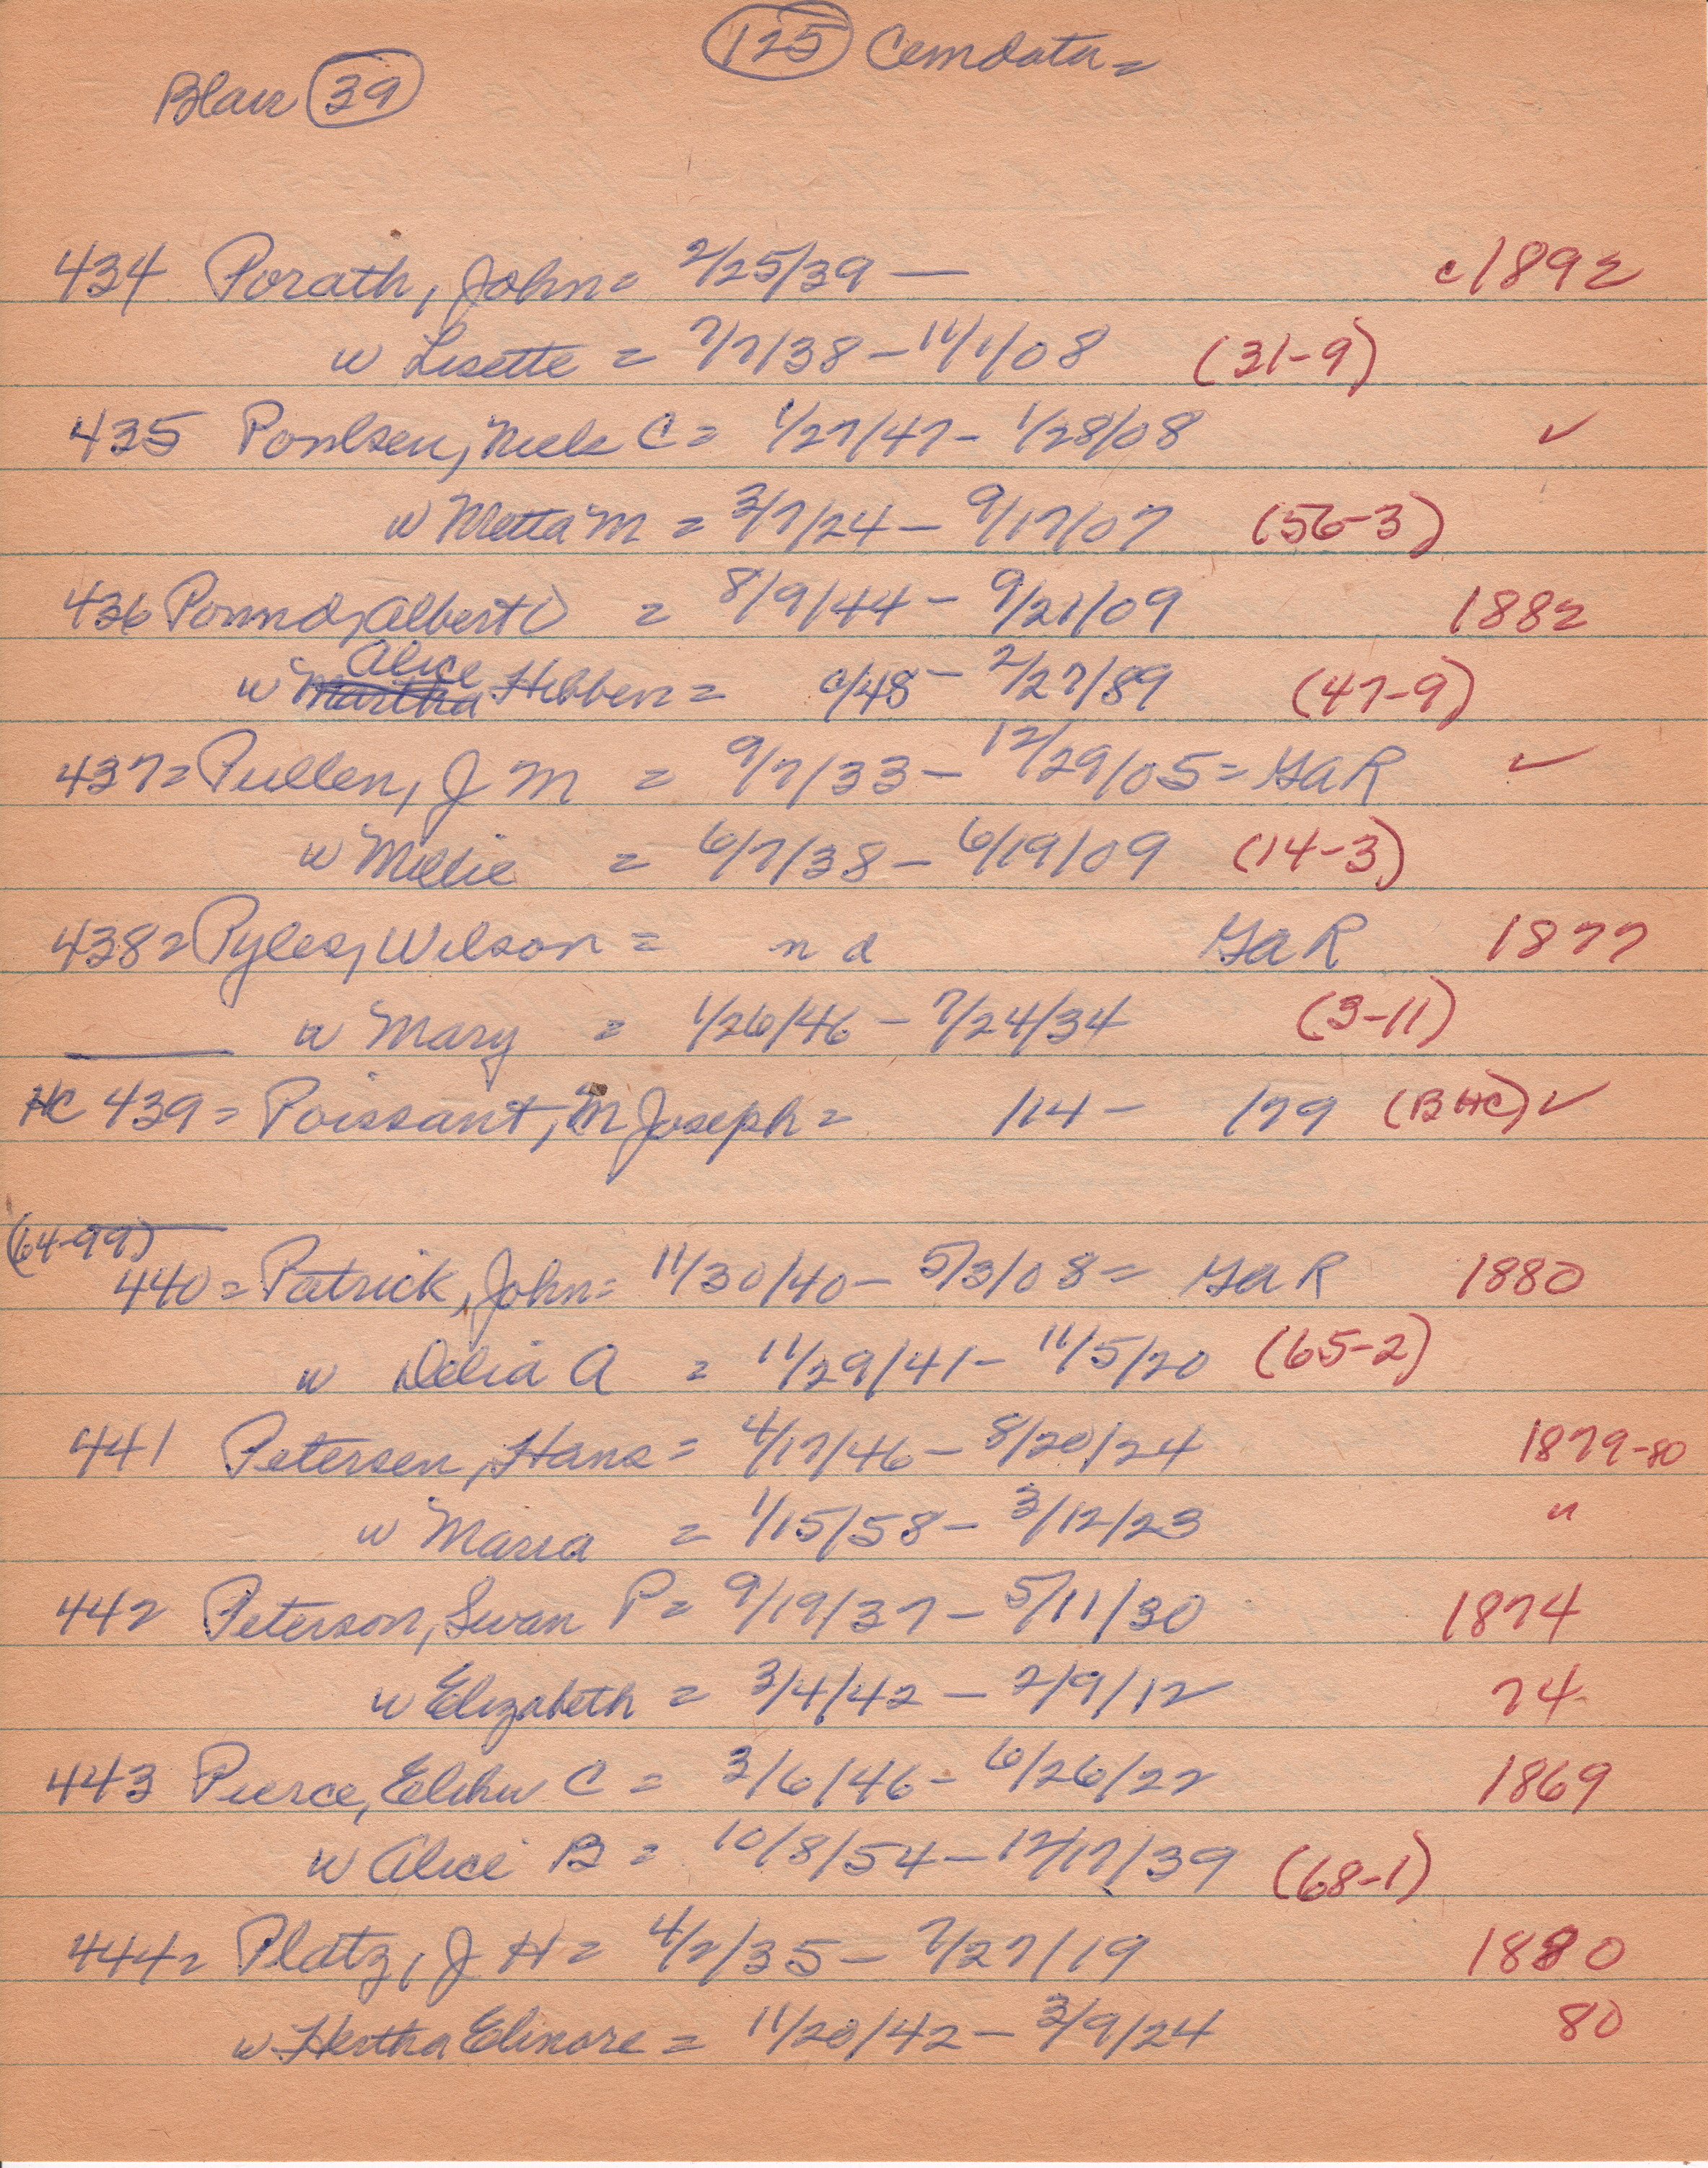 (125) Cemdata =
Blair (39)
434 Porath, John = 2/25/39 — c1892
w Lisette = 7/7/38 – 11/1/08 (31-9)
435 Poulsen, Niels C = 1/27/47 – 1/28/08 ✓
w Metta M = 3/7/24 – 9/17/07 (56-3)
436 Pound, Albert O = 8/9/44 – 9/21/09 1882
w Martha Alice Hibben = c/48 – 2/27/89 (47-9)
437 = Pullen, J M = 9/7/33 – 12/29/05 = GaR ✓
w Millie = 6/7/38 – 6/19/09 (14-3)
438 = Pyles, Wilson = n d GaR 1877
w Mary = 1/26/46 – 7/24/34 (3-11)
HC 439 = Poissant, M Joseph = /14 – /79 (B HC) ✓
(64-99)
440 = Patrick, John = 11/30/40 – 5/3/08 = GaR 1880
w Delia A = 11/29/41 – 11/5/20 (65-2)
441 Petersen, Hans = 4/17/46 – 8/20/24 1879-80
w Maria = 1/15/58 – 3/12/23 "
442 Peterson, Swan P = 9/19/37 – 5/11/30 1874
w Elizabeth = 3/4/42 – 2/9/12 74
443 Pierce, Elihu C = 3/6/46 – 6/26/22 1869
w Alice B = 10/8/54 – 12/17/39 (68-1)
444 = Platz, J H = 4/2/35 – 7/27/19 1880
w Hertha Elinore = 11/20/42 – 3/9/24 80